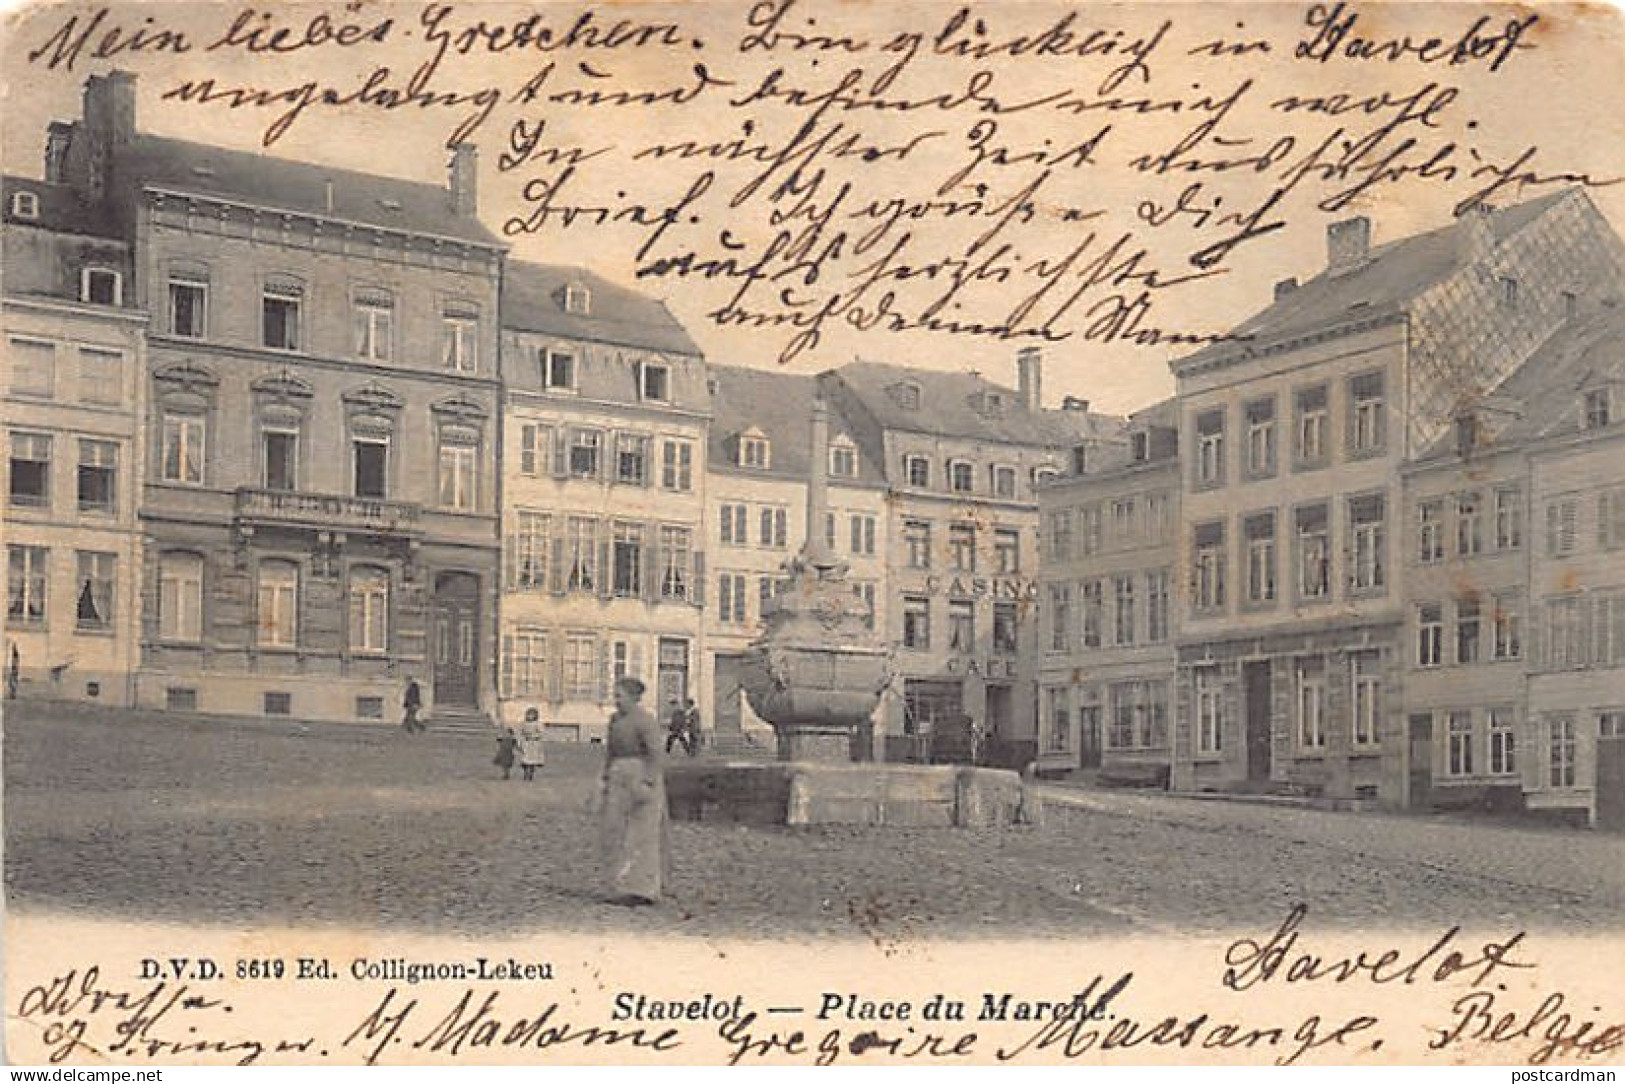 Mein liebes Gretchen. Bin glücklich in Stavelot
angelangt und befinde mich wohl.
In nächster Zeit ausführlichen
Brief. Ich grüße Dich
auf's herzlichste
auch Deinen Mann
CASINO
CAFE
D.V.D. 8619 Ed. Collignon-Lekeu
Stavelot. — Place du Marché.
Stavelot
Adresse.
b/ Madame Gregoire Massange. Belgie
postcardman